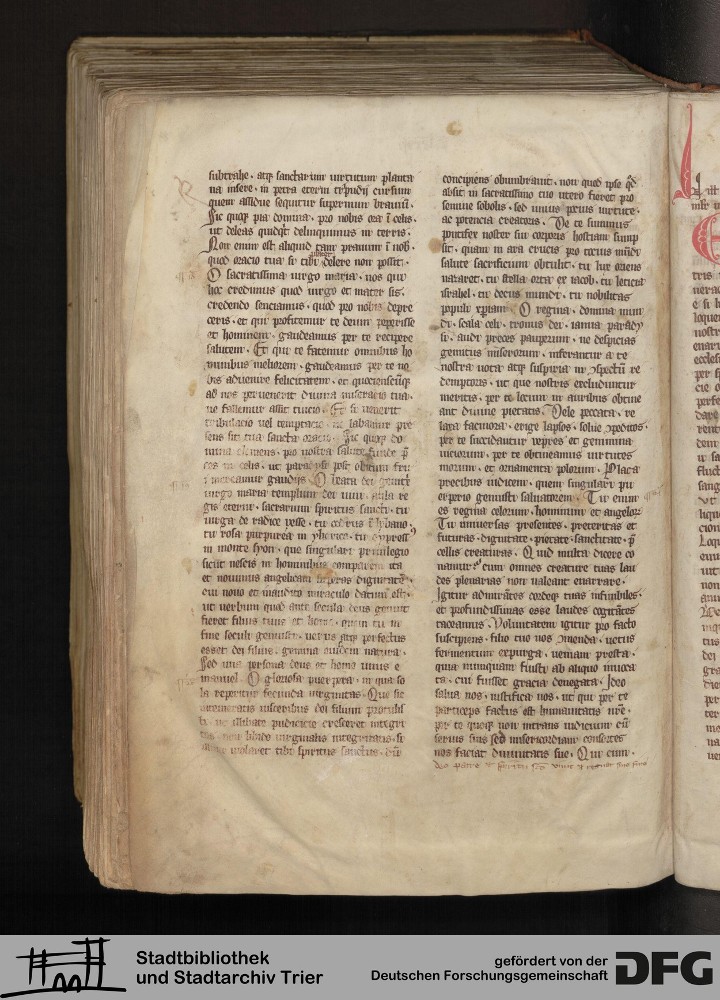 subtrahe · atq; sanctarum uirtutum planta
na insere · in petra eterni tripudij cursum
quem assidue sequitur supernum brauiū ·
Sic quoq; pia domina · pro nobis ora ī celis ·
ut deleas quidqđ delinquimus in terris ·
Non enim est aliquid tam prauum ī nob̄ ·
quod oracio tua si tibi delere non possit ·
O sacratissima uirgo maria · nos qui
hoc credimus quod uirgo et mater sis ·
credendo senciamus · quod pro nobis depre
ceris · et qui profitemur te deum peperisse
et hominem · gaudeamus per te recipere
salutem · Et qui te fatemur omnibus ho
minibus meliorem · gaudeamus per te no
bis aduenire felicitatem · et quociensc̄ūq;
ad nos peruenerit diuina miseracio tua ·
ne fallemur assit tuicio · Et si uenerit
tribulacio uel temptacio · ne labamur pre
sens sit tua sancta oracio · Sic quoq; do
mina clemens · pro nostra salute funde p̄
ces in celis · ut paradyso post obitum fru
i mereamur gaudijs · O beata dei genitͥx
uirgo maria templum dei uiui · aula re
gis eterni · sacrarium spiritus sancti · tu
uirga de radice yesse · tu cedrus ī lybano ·
tu rosa purpurea in yherico · tu cypressꝰ
in monte syon · que singulari priuilegio
sicut nescis in hominibus comparem ita
et nouimus angelicam superas dignitatē ·
cui nouo et inaudito miraculo datum est ·
ut uerbum quod ante secula deus genuit
fieret filius tuus et homo · quem tu in
fine seculi genuisti · uerus atq; perfectus
esset dei filius · gemina eiusdem natura ·
Sed una persona deus et homo unus e
manuel · O gloriosa puerpera · in qua so
la reperitur fecunda uirginitas · Que sic
intemeratis uisceribus dei filium protulis
ti · ne illibate pudicicie cresceret integri
tas · non libido uirginalis integritatis · si
uiolaret tibi spiritus sanctus · dum
concipiens obumbrauit · non quod ipse qđ
absit in sacratissimo tuo utero fieret pro
semine sobolis · sed unius prius uirtute ·
ac potencia creatoris · De te summus
pontifex noster sui corporis hostiam sump
sit · quam in ara crucis pro tocius mūdi
salute sacrificium obtulit · tu lux oriens
nazaret · tu stella orta ex iacob · tu leticia
israhel · tu decus mundi · tu nobilitas
populi xp̄iani · O regina · domina mun
di · scala celi · tronus dei · ianua parady
si · audi preces pauperum · ne despicias
gemitus miserorum · inferantur a te
nostra uota atq; suspiria in ꝯspectū re
demptoris · ut que nostris excluduntur
meritis · per te locum in auribus obtine
ant diuine pietatis · Dele peccata · re
laxa facinora · erige lapsos · solue ꝯpeditos ·
per te succidantur uepres et gemina
uiciorum · per te obtineamus uirtutes
morum · et ornamenta polorum · Placa
precibus iudicem · quem singulari pu
erperio genuisti saluatorem · Tu enim
es regina celorum · hominum et angeloꝝ
Tu uniuersas presentes · preteritas et
futuras · dignitate · pietate · sanctitate · p̄
cellis creaturas · Quid multa dicere co
namur cum omnes creature tuas lau
des pleniarias non ualeant enarrare ·
Igitur admirātes cordeq; tuas infinibiles ·
et profundissimas esse laudes cogitātes
taceamus · Voluntatem igitur pro facto
suscipiens · filio tuo nos ꝯmenda · uetus
fermentum expurga · ueniam presta ·
quia numquam fuisti ab aliquo inuoca
ta · cui fuisset gracia denegata · Ideo
salua nos · iustifica nos · ut qui per te
particeps factus est humanitatis nr̄e ·
per te quoq; non intrans iudicium cū
seruis suis sed misericordiam consortes
nos faciat diuinitatis sue · Qui cum ·
deo patre et spiritu sc̄o viuit et regnat
Stadtbibliothek
und Stadtarchiv Trier
gefördert von der
Deutschen Forschungsgemeinschaft
DFG